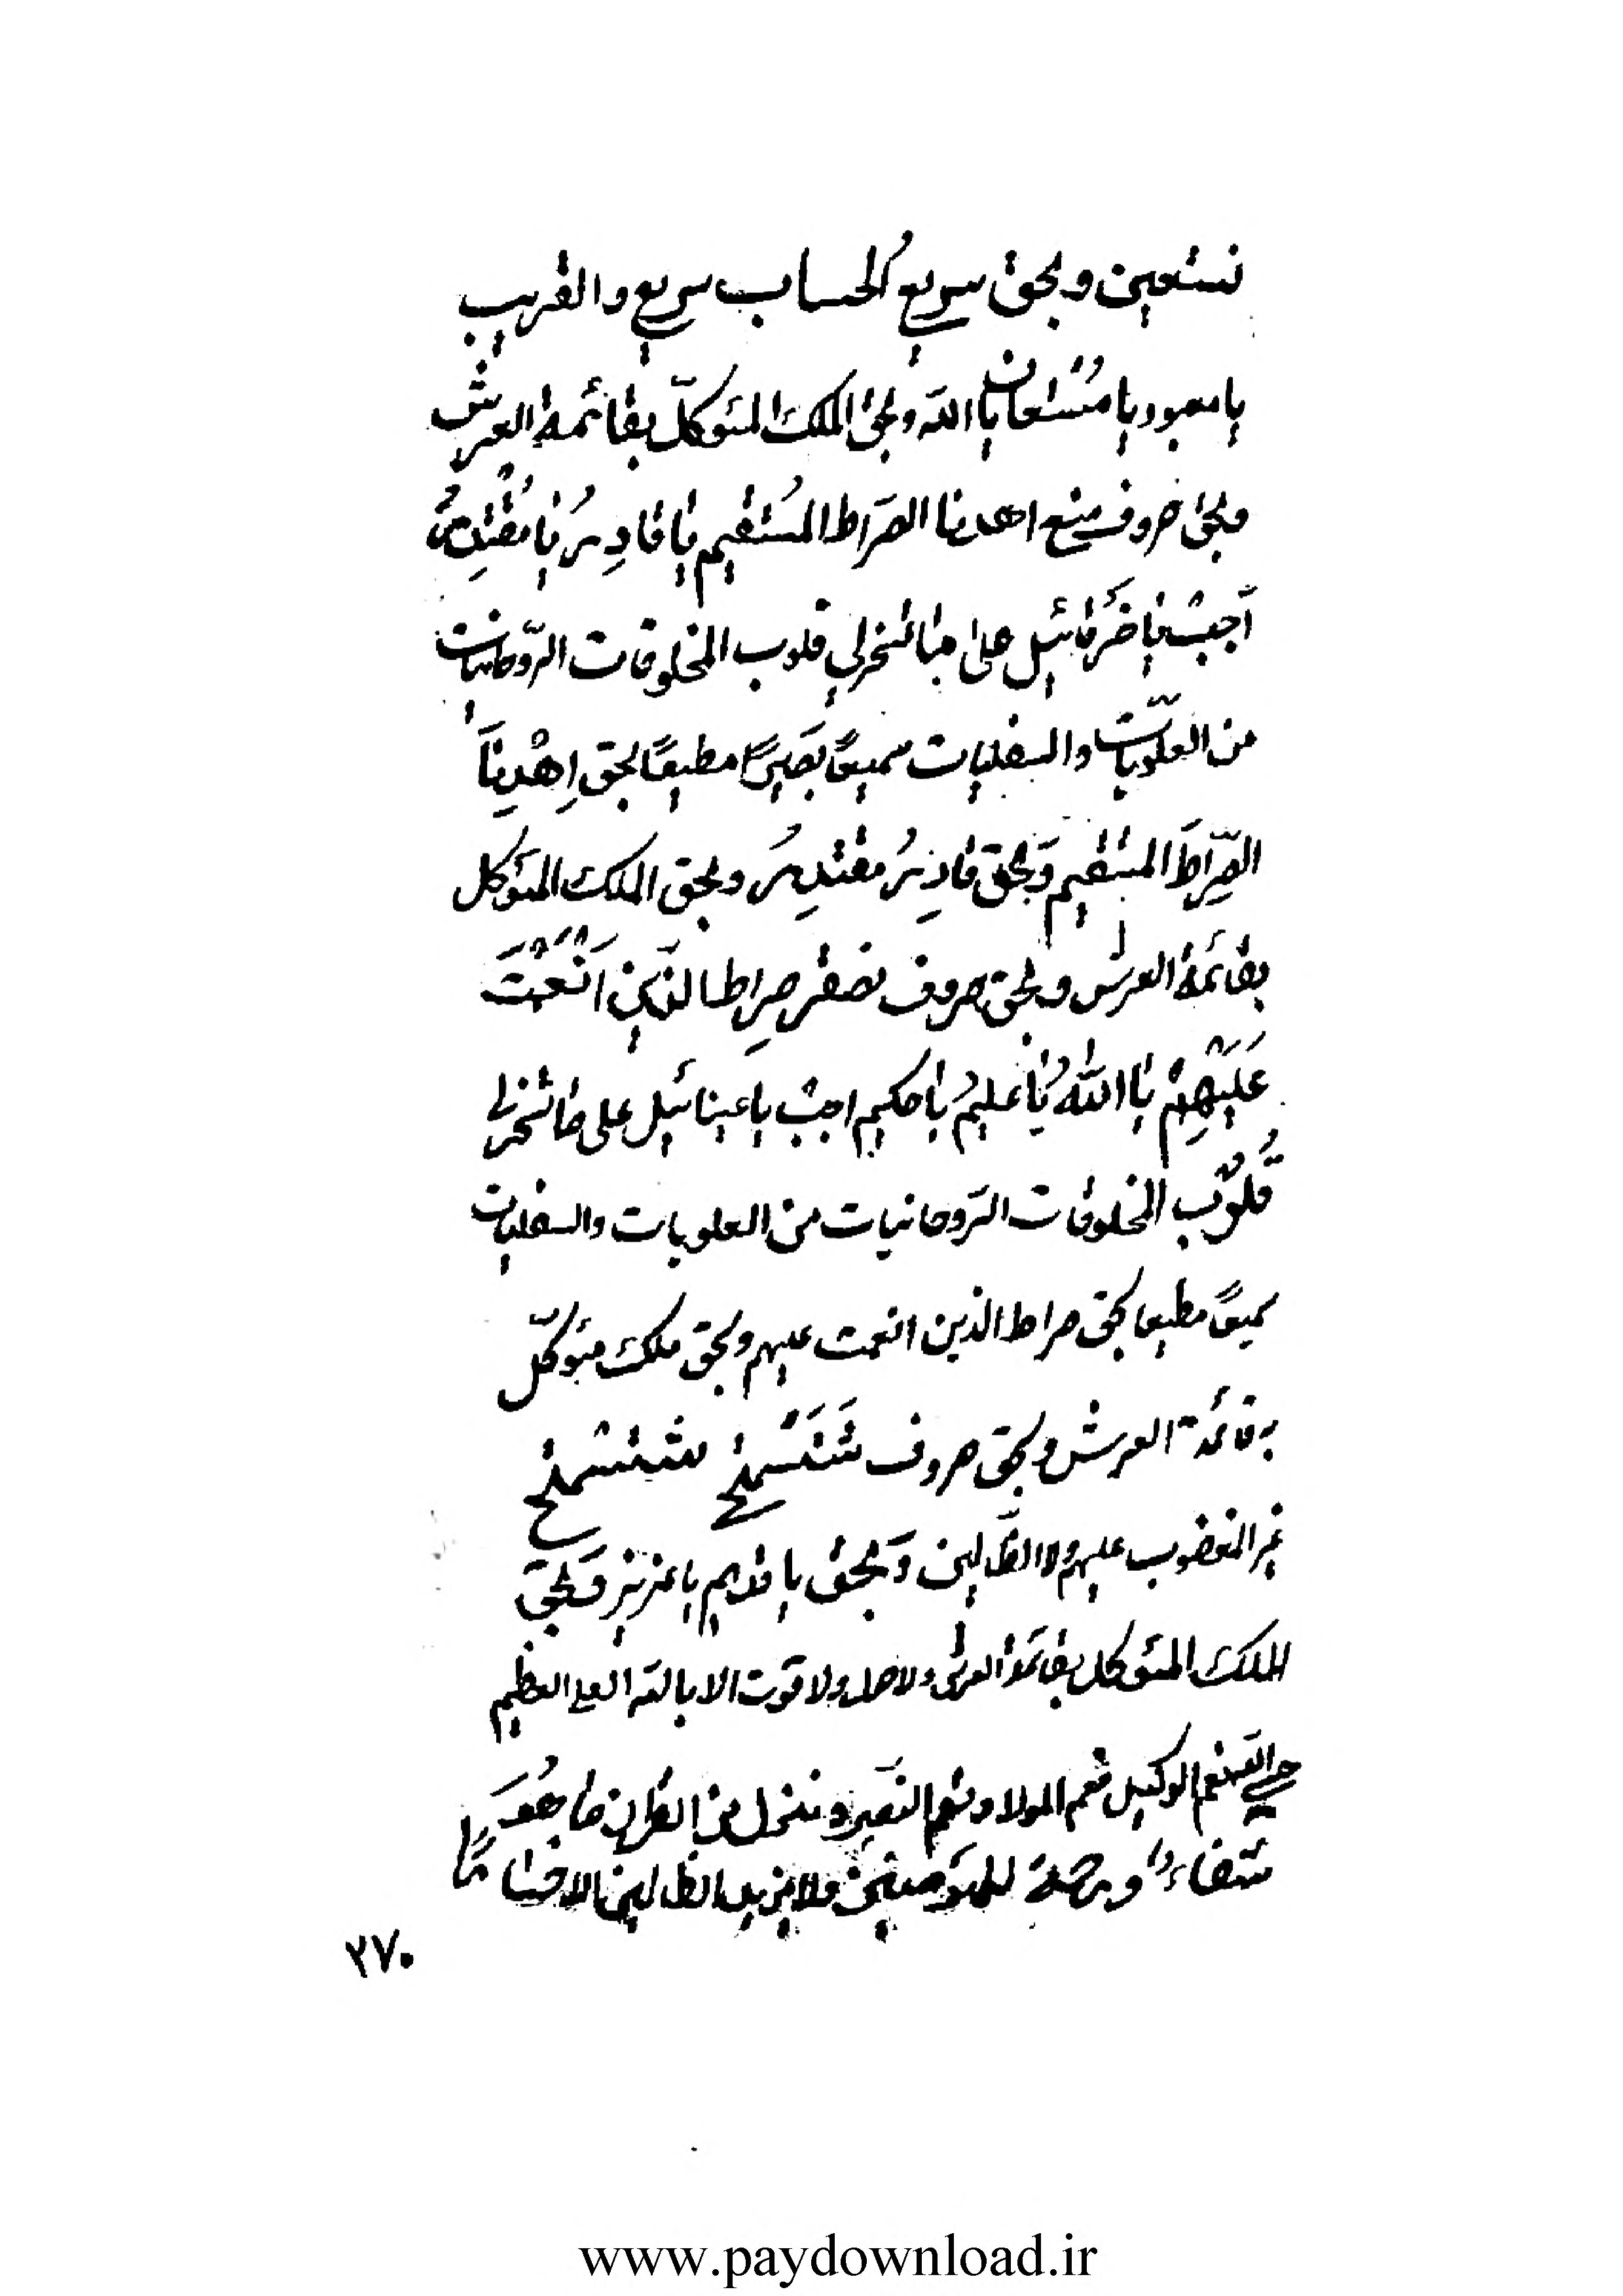 نستعین و بحق سریعُ الحساب سریع والقریب
یا معبود یا مُسْتَعان یا الله وبحق الملک المتوکلّ بقائمة العرش
وبحق حروف اهدنا الصرَاط المُستقیم یا قادِرُ یا مُقْتَدِرُ
اَجِبْ یا قلوب المخلوقات الرّوحانیات
من العلّویات والسفلیات سمیعاً بَصیراً مطیعاً بحق اِهْدِنَا
الصِّرَاطَ المستقیم وَبحق قادِرُ مقتدِرُ وبحق الملک المتوکل
بقائمة العرش وبحق حروف صِراط الذَین اَنْعَمْتَ
عَلَیْهِمْ یا اللهُ یا علیمُ یا حکیم اجِبْ یا عینائیل علی
قُلوُب المخلوقات الرَوحانیات من العلویات والسفلیات
سمیعاً مطیعا بحق صراط الذین انعمت علیهم وبحق ملک متوکلّ
به قائمة العرش وبحق حروف
غیر المغضوب علیهم ولا الظَالین وَبحق یا قدیم یا عزیز وَبحق
الملک المتوکل بقائمة العرش ولا حول ولا قوت الا بالله العلی العظیم
حسبی الله نعم الوکیل نعم المولا و نعم النَصیر و ننزل من القران ما هُوَ
شفاءٌ و رحمة للمؤمنین ولا یزید الظالمین الا خساماً
۲۷۰
www.paydownload.ir